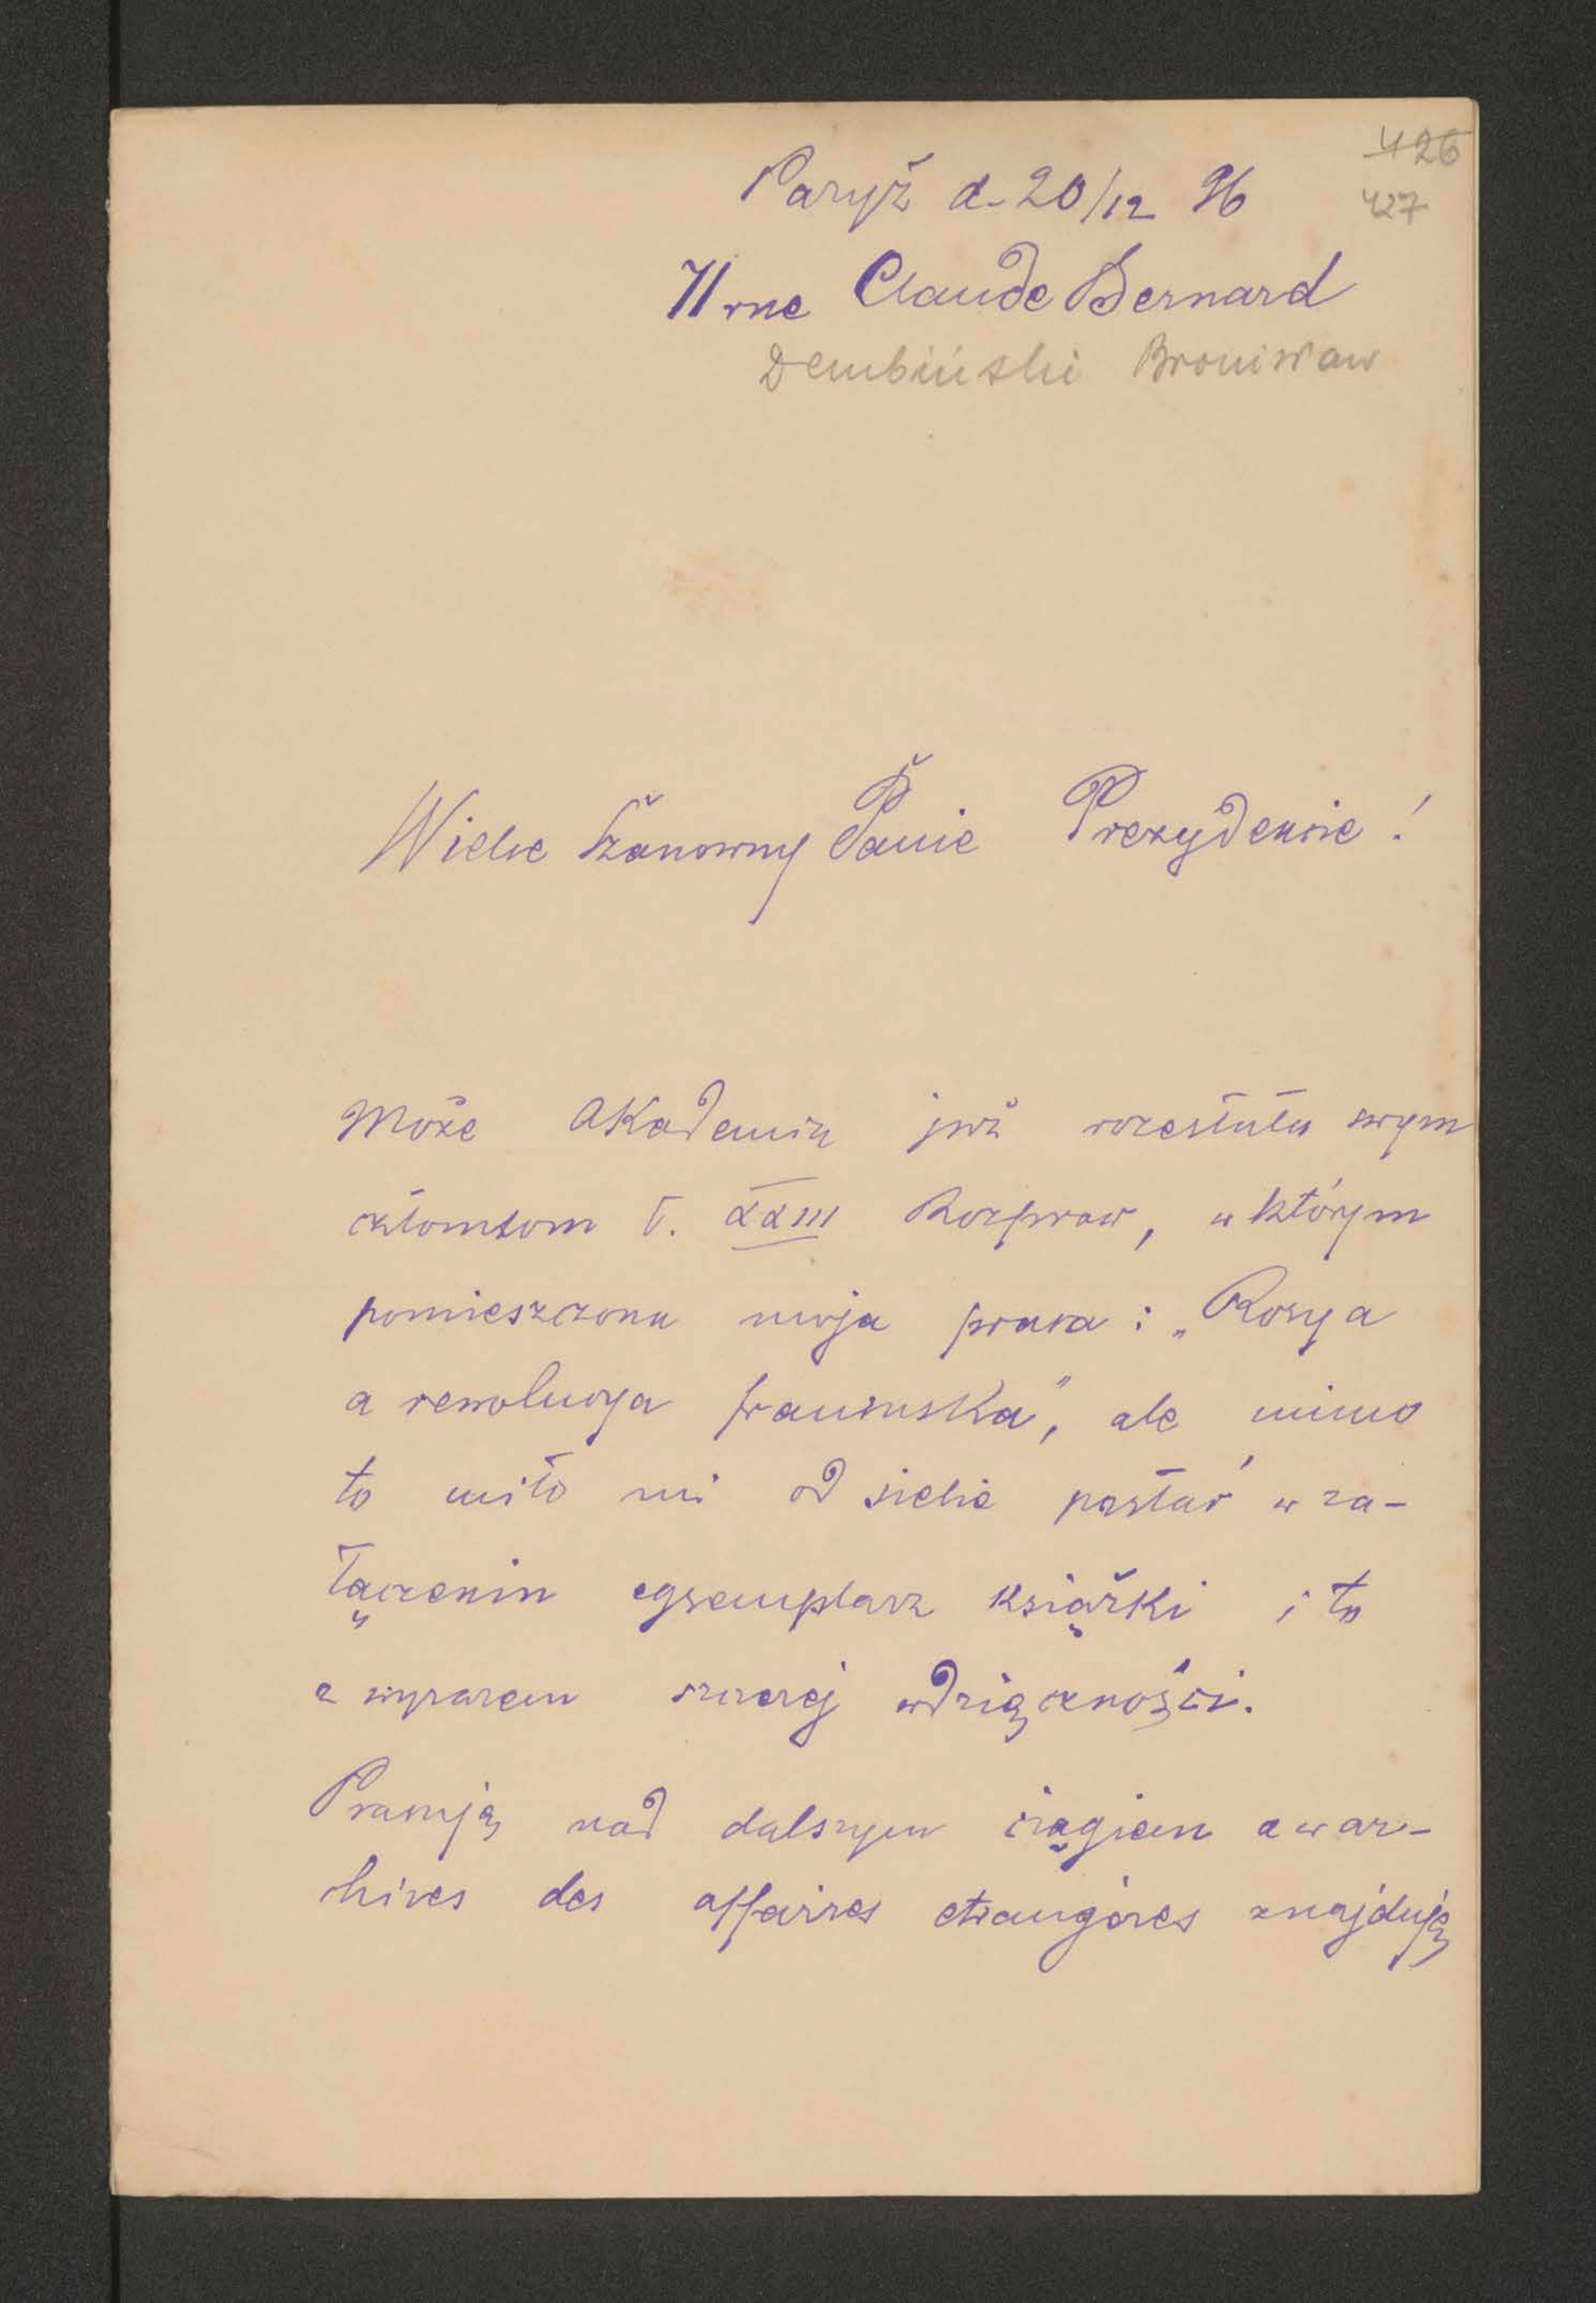 426
Paryż d. 20/12 96
427
71 rue Claude Bernard
Dembiński Bronisław
Wielce Szanowny Panie Prezydencie!
Może Akademia już rozesłała swym
członkom t. XXXIII Rozpraw, w którym
pomieszczona moja praca: „Rosya
a rewolucya francuska", ale mimo
to miło mi od siebie posłać w za-
łączeniu egzemplarz książki i to
z wyrazem szczerej wdzięczności.
Pracuję nad dalszym ciągiem a w ar-
chives des affaires etrangères znajduję